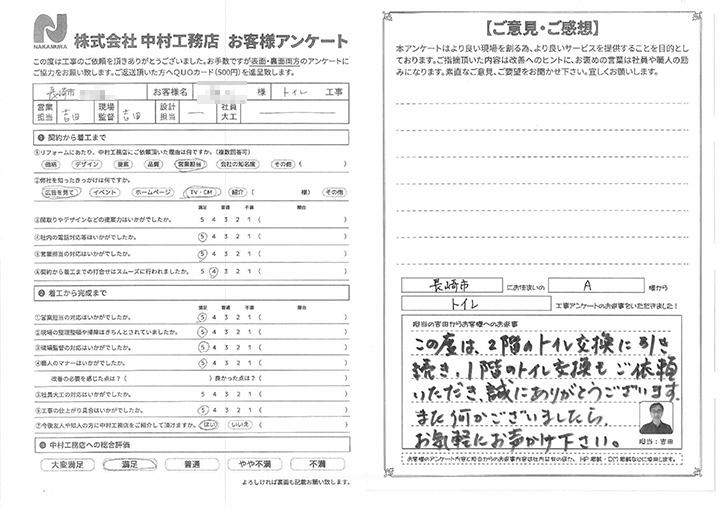 NAKAMURA
株式会社 中村工務店 お客様アンケート
この度は工事のご依頼を頂きありがとうございました。お手数ですが表面・裏面両方のアンケートに
ご協力をお願い致します。ご返送頂いた方へQUOカード(500円)を進呈致します。
長崎市 お客様名 様 トイレ 工事
営業担当 吉田 現場監督 吉田 設計担当 ー 社員大工 ー
❶ 契約から着工まで
①リフォームにあたり、中村工務店にご依頼頂いた理由は何ですか。(複数回答可)
価格 デザイン 提案 品質 営業担当 会社の知名度 その他 ( )
②弊社を知ったきっかけは何ですか。
広告を見て イベント ホームページ TV・CM 紹介 ( 様) その他
満足 普通 不満 理由
③間取りやデザインなどの提案力はいかがでしたか。 5 4 3 2 1 ( )
④社内の電話対応等はいかがでしたか。 5 4 3 2 1 ( )
⑤営業担当の対応はいかがでしたか。 5 4 3 2 1 ( )
⑥契約から着工までの打合せはスムーズに行われましたか。 5 4 3 2 1 ( )
❷ 着工から完成まで
満足 普通 不満 理由
①営業担当の対応はいかがでしたか。 5 4 3 2 1 ( )
②現場の整理整頓や掃除はきちんとされていましたか。 5 4 3 2 1 ( )
③現場監督の対応はいかがでしたか。 5 4 3 2 1 ( )
④職人のマナーはいかがでしたか。 5 4 3 2 1 ( )
改善の必要を感じた点は？( ) 良かった点は？( )
⑤社員大工の対応はいかがでしたか。 5 4 3 2 1 ( )
⑥工事の仕上がり具合はいかがでしたか。 5 4 3 2 1 ( )
⑦今後友人や知人の方に中村工務店をご紹介して頂けますか。 はい いいえ ( )
❸ 中村工務店への総合評価
大変満足 満足 普通 やや不満 不満
よろしければ裏面も記載お願い致します。
【ご意見・ご感想】
本アンケートはより良い現場を創る為、より良いサービスを提供することを目的とし
ております。ご指摘頂いた内容は改善へのヒントに、お褒めの言葉は社員や職人の励
みになります。素直なご意見、ご要望をお聞かせ下さい。宜しくお願いします。
長崎市 にお住まいの A 様から
トイレ 工事アンケートのお返事をいただきました！
担当の吉田からお客様へのお返事
この度は、2階のトイレ交換に引き
続き、1階のトイレ交換もご依頼
いただき、誠にありがとうございます。
また何かございましたら、
お気軽にお声かけ下さい。
担当：吉田